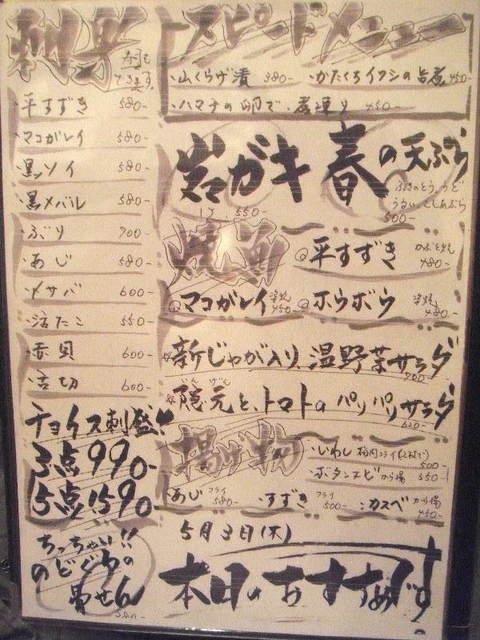 刺身
平すずき 580-
マコガレイ 580-
黒ソイ 580-
黒メバル 580-
ぶり 700-
あじ 580-
〆サバ 600-
活たこ 550-
赤貝 600-
チョイス刺盛!!
3点990-
5点1590
ちっちゃい!!
のどぐろの
スピードメニュー
山くらげ漬 380-
かたくちイワシの旨煮 450-
ハマチの卵で、煮凍り 450-
岩ガキ
1ケ 550-
春の天ぷら
ふきのとう、うど
こしあぶら
500-
焼魚
平すずき かぶと焼 480-
マコガレイ 450-
ホウボウ 480-
新じゃが入り、温野菜サラダ
隠元と、トマトのパリパリサラダ
揚げ物
いわし 500-
ボタンエビ から揚 550-
あじ フライ 580-
すずき フライ 500-
カスベ から揚 450-
5月3日(木)
本日のおすすめです